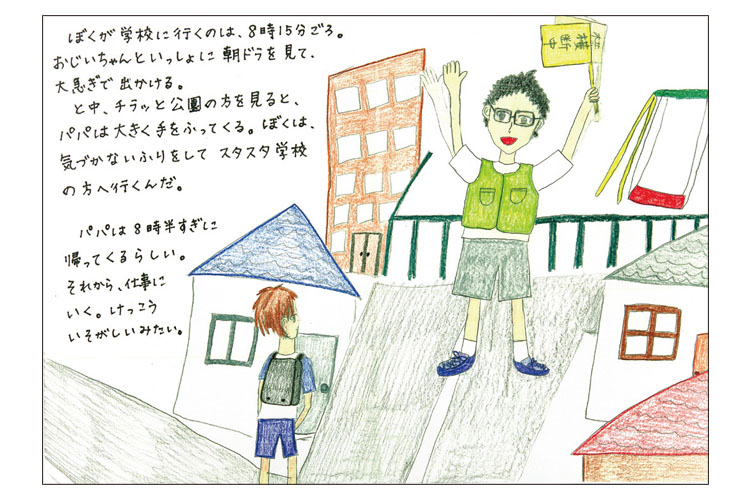 ぼくが学校に行くのは、8時15分ごろ。
おじいちゃんといっしょに朝ドラを見て、
大急ぎで出かける。
と中、チラッと公園の方を見ると、
パパは大きく手をふってくる。ぼくは、
気づかないふりをして スタスタ学校
の方へ行くんだ。
パパは8時半すぎに
帰ってくるらしい。
それから、仕事に
いく。けっこう
いそがしいみたい。
横断中